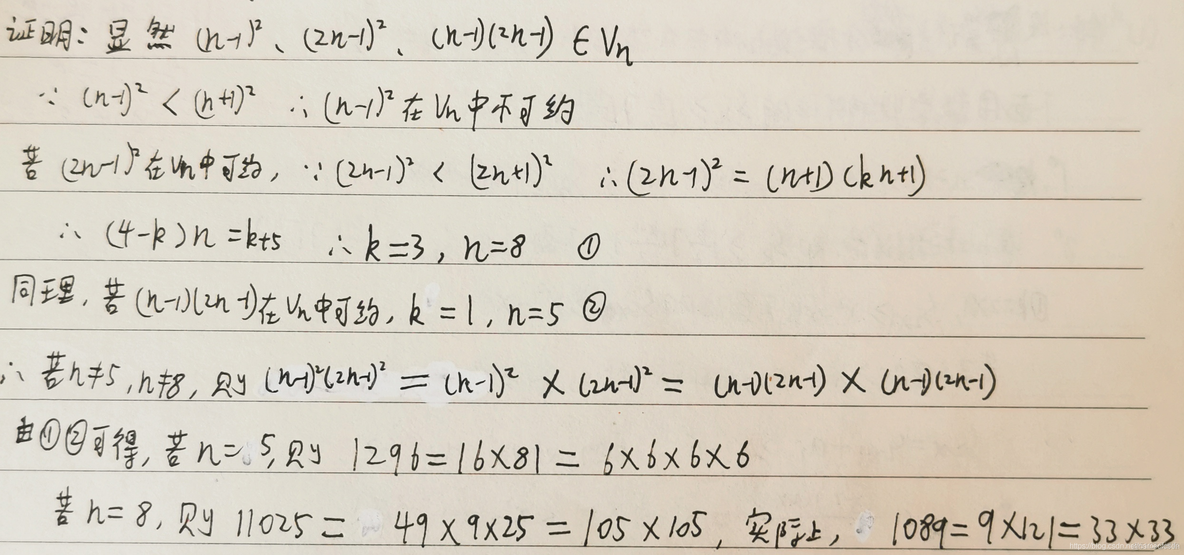 证明：显然 (n-1)²、(2n-1)²、(n-1)(2n-1) ∈ Vn
∵ (n-1)² < (n+1)² ∴ (n-1)² 在 Vn 中不可约
若 (2n-1)² 在 Vn 中可约, ∵ (2n-1)² < (2n+1)² ∴ (2n-1)² = (n+1)(kn+1)
∴ (4-k)n = k+5 ∴ k=3, n=8 ①
同理, 若 (n-1)(2n-1) 在 Vn 中可约, k=1, n=5 ②
∴ 若 n≠5, n≠8, 则 (n-1)²(2n-1)² = (n-1)² × (2n-1)² = (n-1)(2n-1) × (n-1)(2n-1)
由①②可得, 若 n=5, 则 1296=16×81= 6×6×6×6
若 n=8, 则 11025= 49×9×25=105×105, 实际上, 1089=9×121=33×33